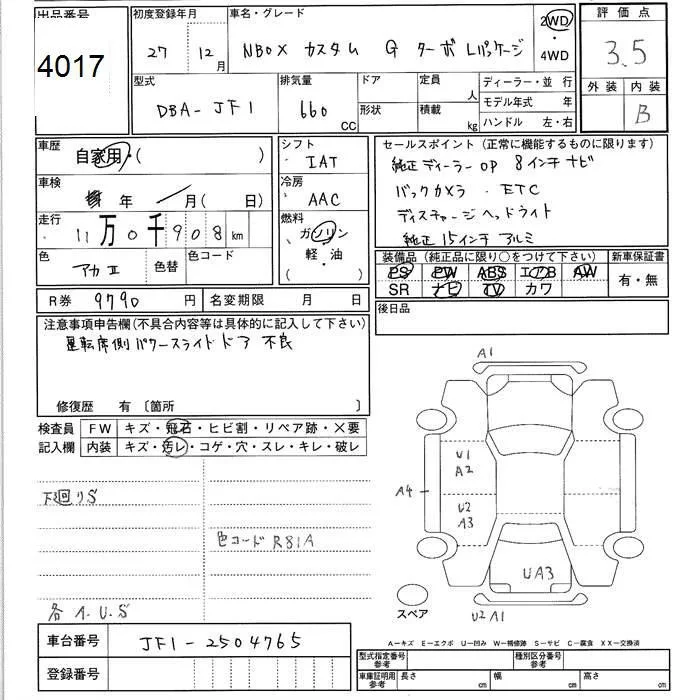 出品番号 4017
初度登録年月 27 12月
車名・グレード NBOX カスタム G ターボ Lパッケージ
2WD・4WD
評価点 3.5
外装 内装 B
型式 DBA-JF1
排気量 660 CC
ドア
形状
定員 人
積載 kg
ディーラー・並 行
モデル年式 年
ハンドル 左・右
車歴 自家用・( )
車検 年 月( 日)
走行 11万0千908km
色 アカⅡ 色替 色コード
シフト IAT
冷房 AAC
燃料 ガソリン
軽・油
( )
セールスポイント(正常に機能するものに限ります)
純正ディーラーOP 8インチナビ
バックカメラ . ETC
ディスチャージヘッドライト
純正15インチアルミ
装備品(純正品に限り○をつけて下さい)
PS PW ABS エアB AW
SR ナビ TV カワ
新車保証書
有・無
R券 9790 円 名変期限 月 日
後日品
注意事項申告欄(不具合内容等は具体的に記入して下さい)
運転席側パワースライドドア 不良
修復歴 有〔箇所 〕
検査員記入欄
FW キズ・飛石・ヒビ割・リペア跡・✕要
内装 キズ・汚レ・コゲ・穴・スレ・キレ・破レ
下廻りS
色コード R81A
各 A.U.S
A1
U1
A2
A4
U2
A3
UA3
スペア
U2 A1
A−キズ E−エクボ U−凹み W−補修跡 S−サビ C−腐食 XX−交換済
車台番号 JF1-2504765
登録番号
型式指定番号参考 種別区分番号参考
車庫証明用参考 長さ cm 幅 cm 高さ cm